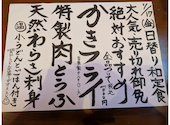 1/17(金)日替り和定食
大人気売り切れ御免
絶対おすすめ!
かきフライ
特製肉どうふ
天然わらさ刺身
小うどんとごはん付き